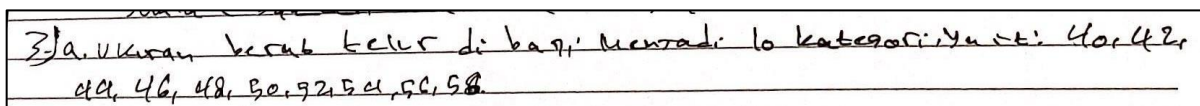 3.)a. Ukuran berat telur di bagi menjadi 10 kategori, yait: 40, 42,
44, 46, 48, 50, 52, 54, 56, 58.